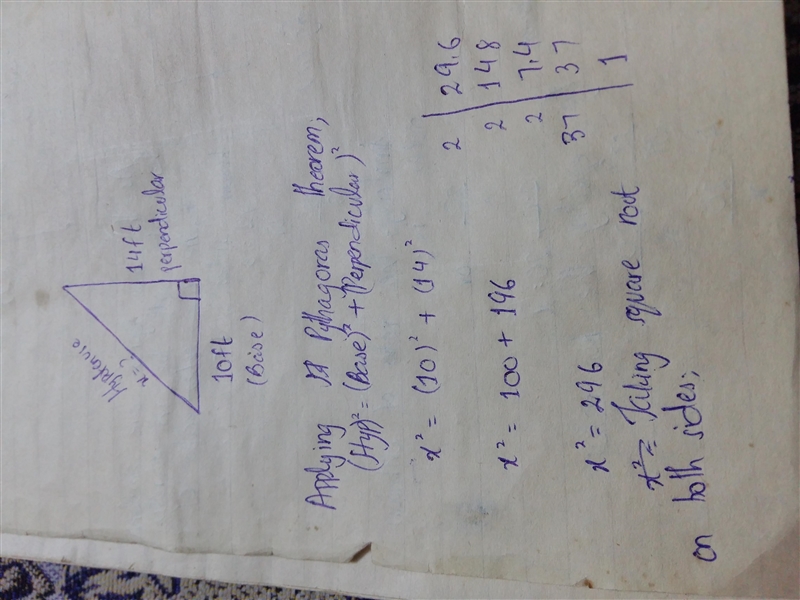 Hyptenuse
x = ?
14ft
perpendicular
10ft
(Base)
Applying Pythagoras theorem;
(Hyp)² = (Base)² + (Perpendicular)²
x² = (10)² + (14)²
x² = 100 + 196
x² = 296
x² = Taking square root
on both sides;
2 | 29.6
2 | 148
2 | 7.4
37 | 37
1